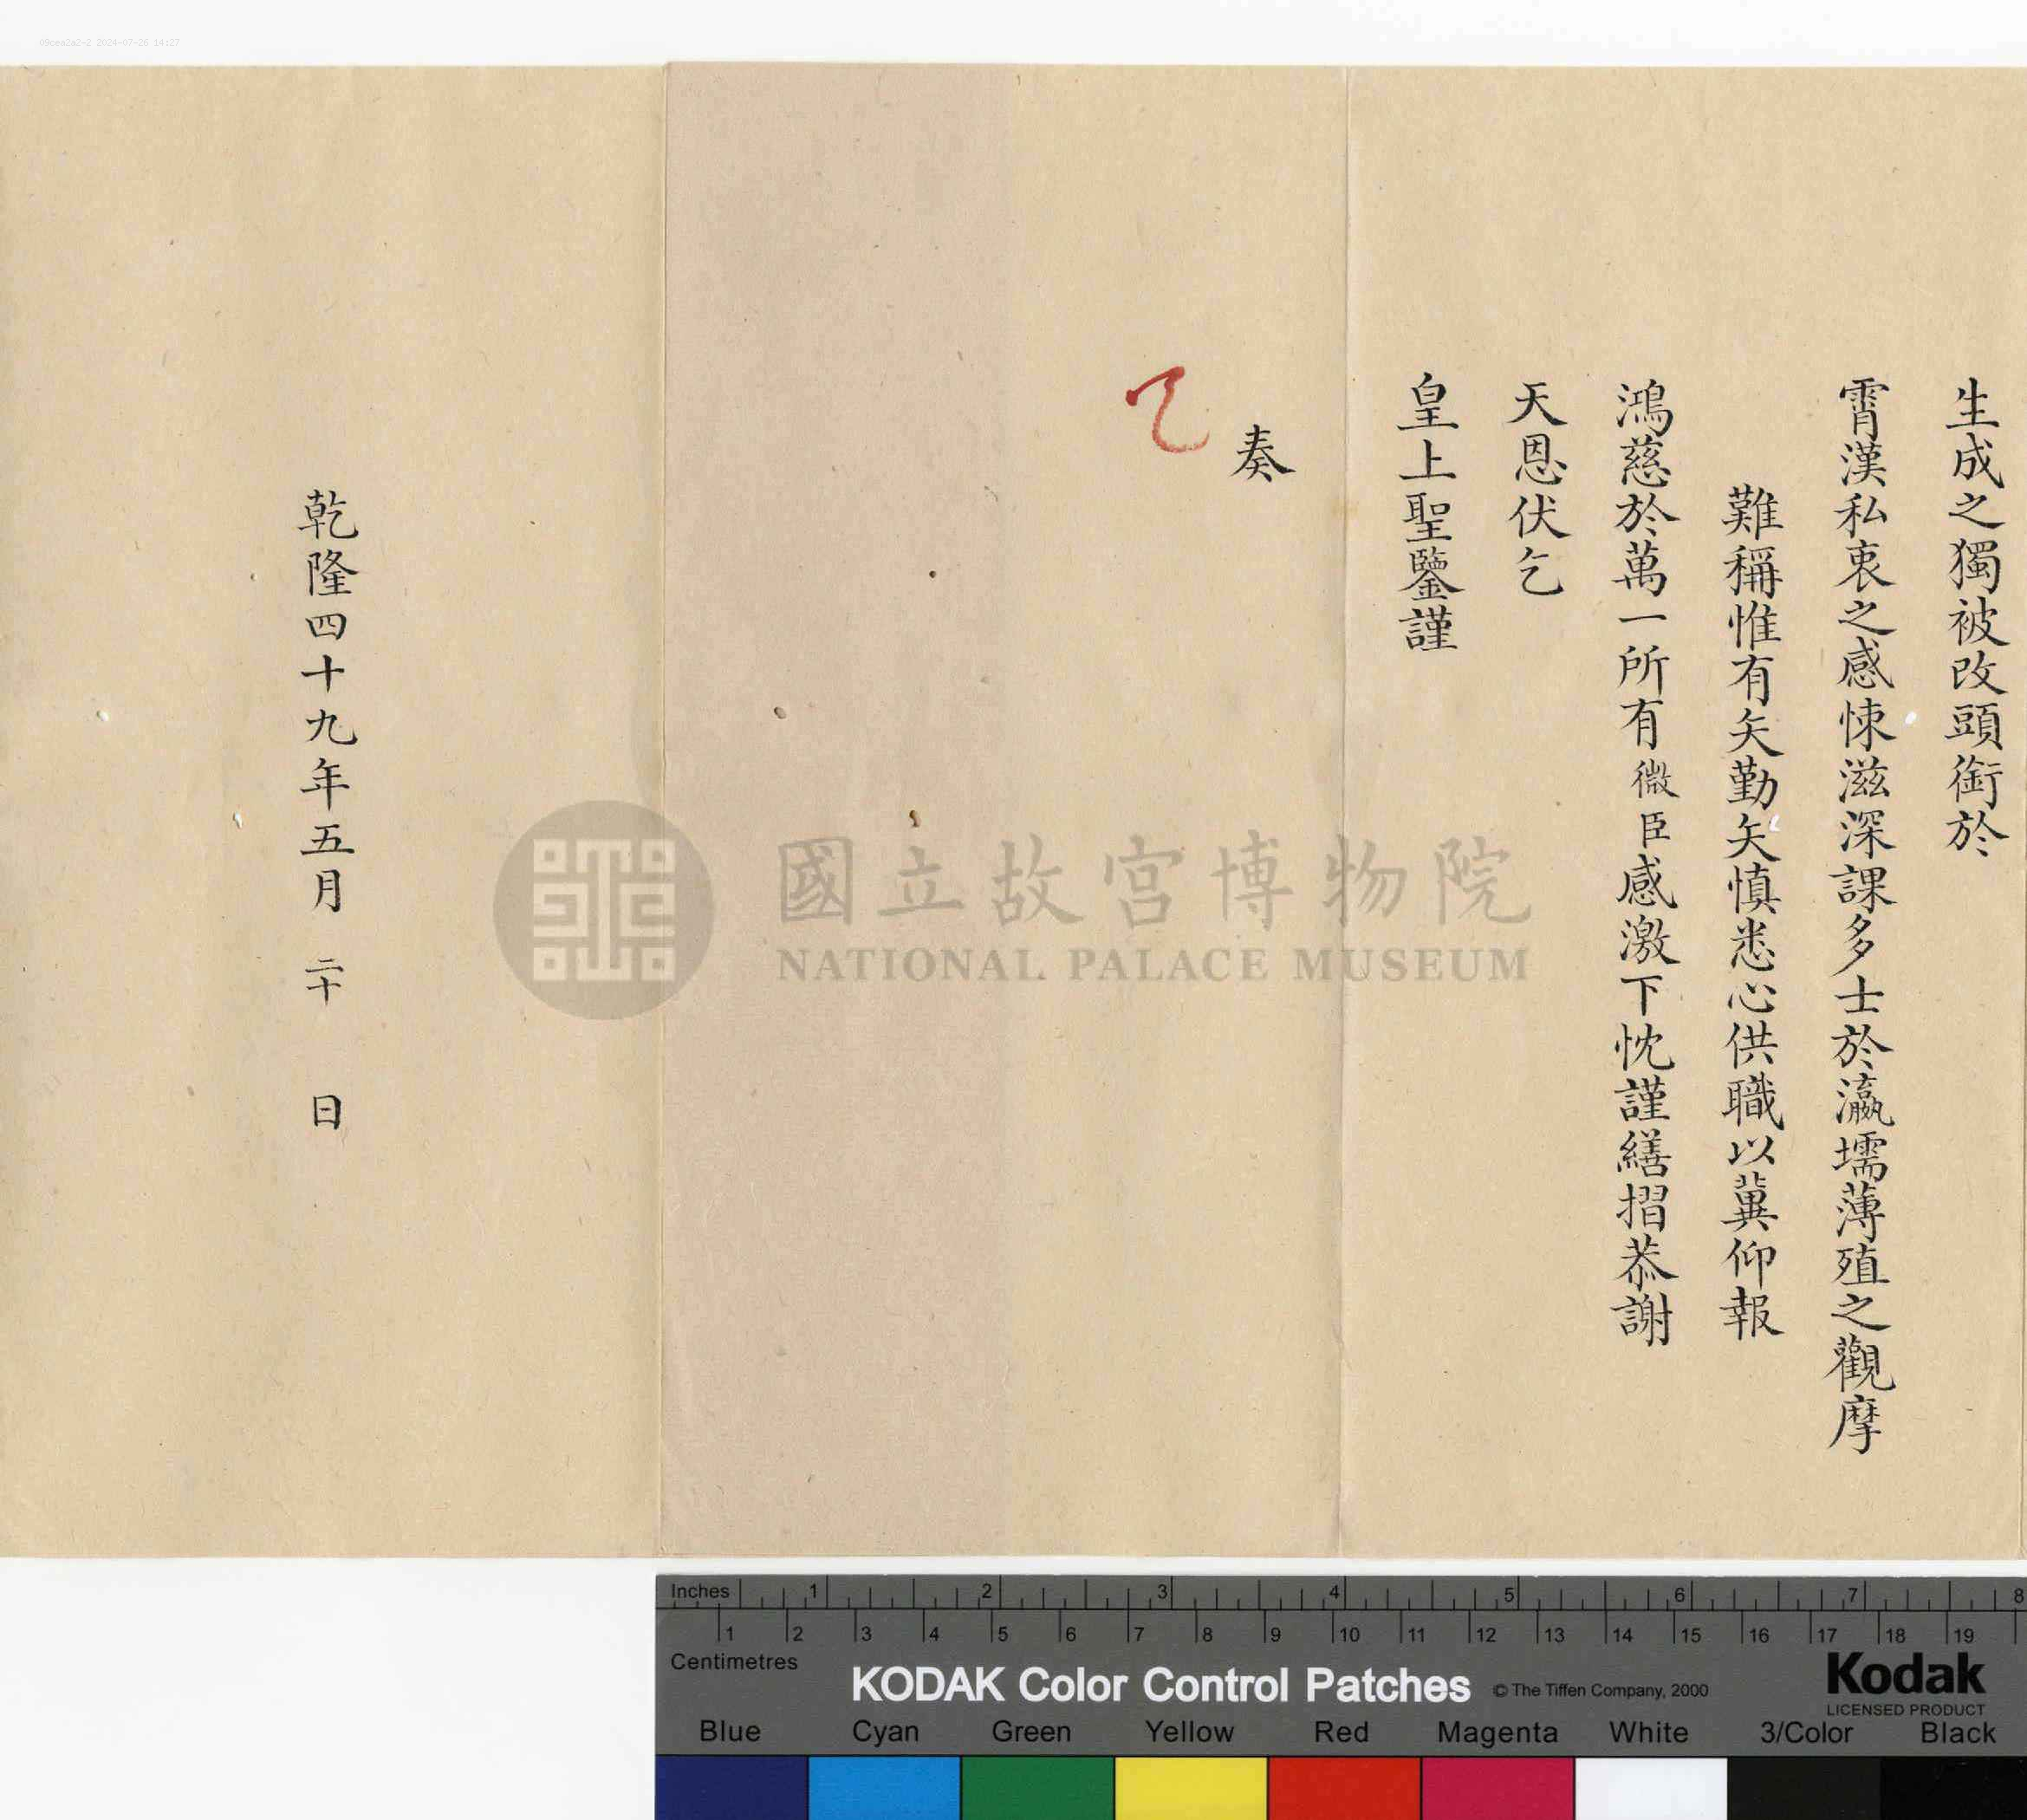 生成之獨被改頭銜於
霄漢私衷之感悚滋深課多士於瀛壖薄殖之觀摩
難稱惟有矢勤矢慎悉心供職以冀仰報
鴻慈於萬一所有微臣感激下忱謹繕摺恭謝
天恩伏乞
皇上聖鑒謹
奏
乾隆四十九年五月二十日
國立故宮博物院
NATIONAL PALACE MUSEUM
09cea2a2-2 2024-07-26 14:27
Inches 1 2 3 4 5 6 7 8
1 2 3 4 5 6 7 8 9 10 11 12 13 14 15 16 17 18 19
Centimetres
KODAK Color Control Patches © The Tiffen Company, 2000
Kodak
LICENSED PRODUCT
Blue Cyan Green Yellow Red Magenta White 3/Color Black